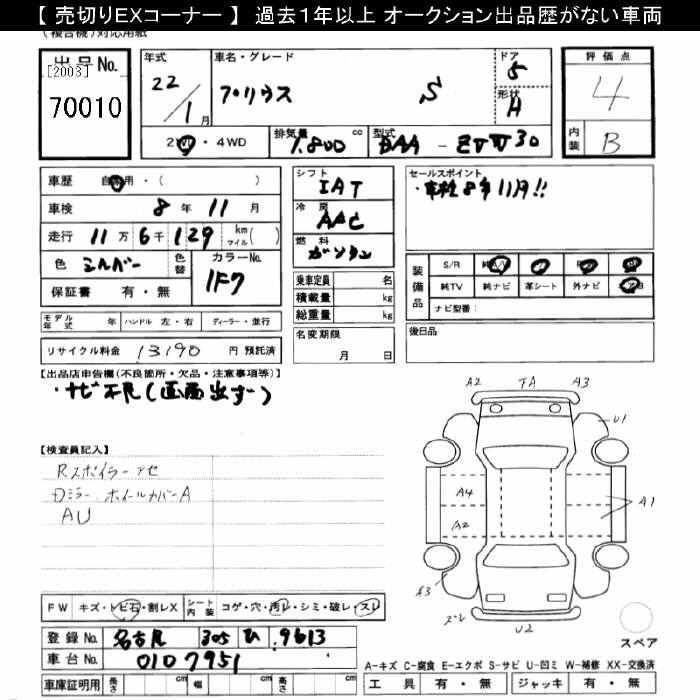 【 売切りEXコーナー 】 過去1年以上 オークション出品歴がない車両
(複合機)対応用紙
出品No.
[2003]
70010
年式
22/1月
車名・グレード
プリウス S
ドア
5
形状
H
評価点
4
内装
B
2WD・4WD
排気量
1.800 cc
型式
DAA - ZVW30
車歴 自家用・( )
車検 8年 11月
走行 11万 6千 129 km マイル( )
色 シルバー
色替
カラーNo.
1F7
保証書 有・無
シフト
IAT
冷房
AAC
燃料
ガソリン
乗車定員 名
積載量 kg
総重量 kg
セールスポイント
・車検8年11月!!
装備品
S/R 純A/W
純TV 純ナビ 革シート 外ナビ
ナビ型番:
モデル年式 年 ハンドル 左・右 ディーラー・並行
名変期限
月 日
後日品
リサイクル料金 13190 円 預託済
【出品店申告欄(不良箇所・欠品・注意事項等)】
・ナビ不良(画面出ず)
【検査員記入】
Rスポイラーアセ
Dミラー ホイールカバーA
AU
A2 TA A3
U1
A4 A1
A2
A3
ズレ
U2
スペア
FW キズ・トビ石・割レX シート内装 コゲ・穴・汚レ・シミ・破レ・スレ
登録No. 名古屋 305 ひ .9613
車台No. 0107951
車庫証明用 長さ cm 幅 cm 高さ cm
A-キズ C-腐食 E-エクボ S-サビ U-凹ミ W-補修 XX-交換済
工具 有・無 ジャッキ 有・無